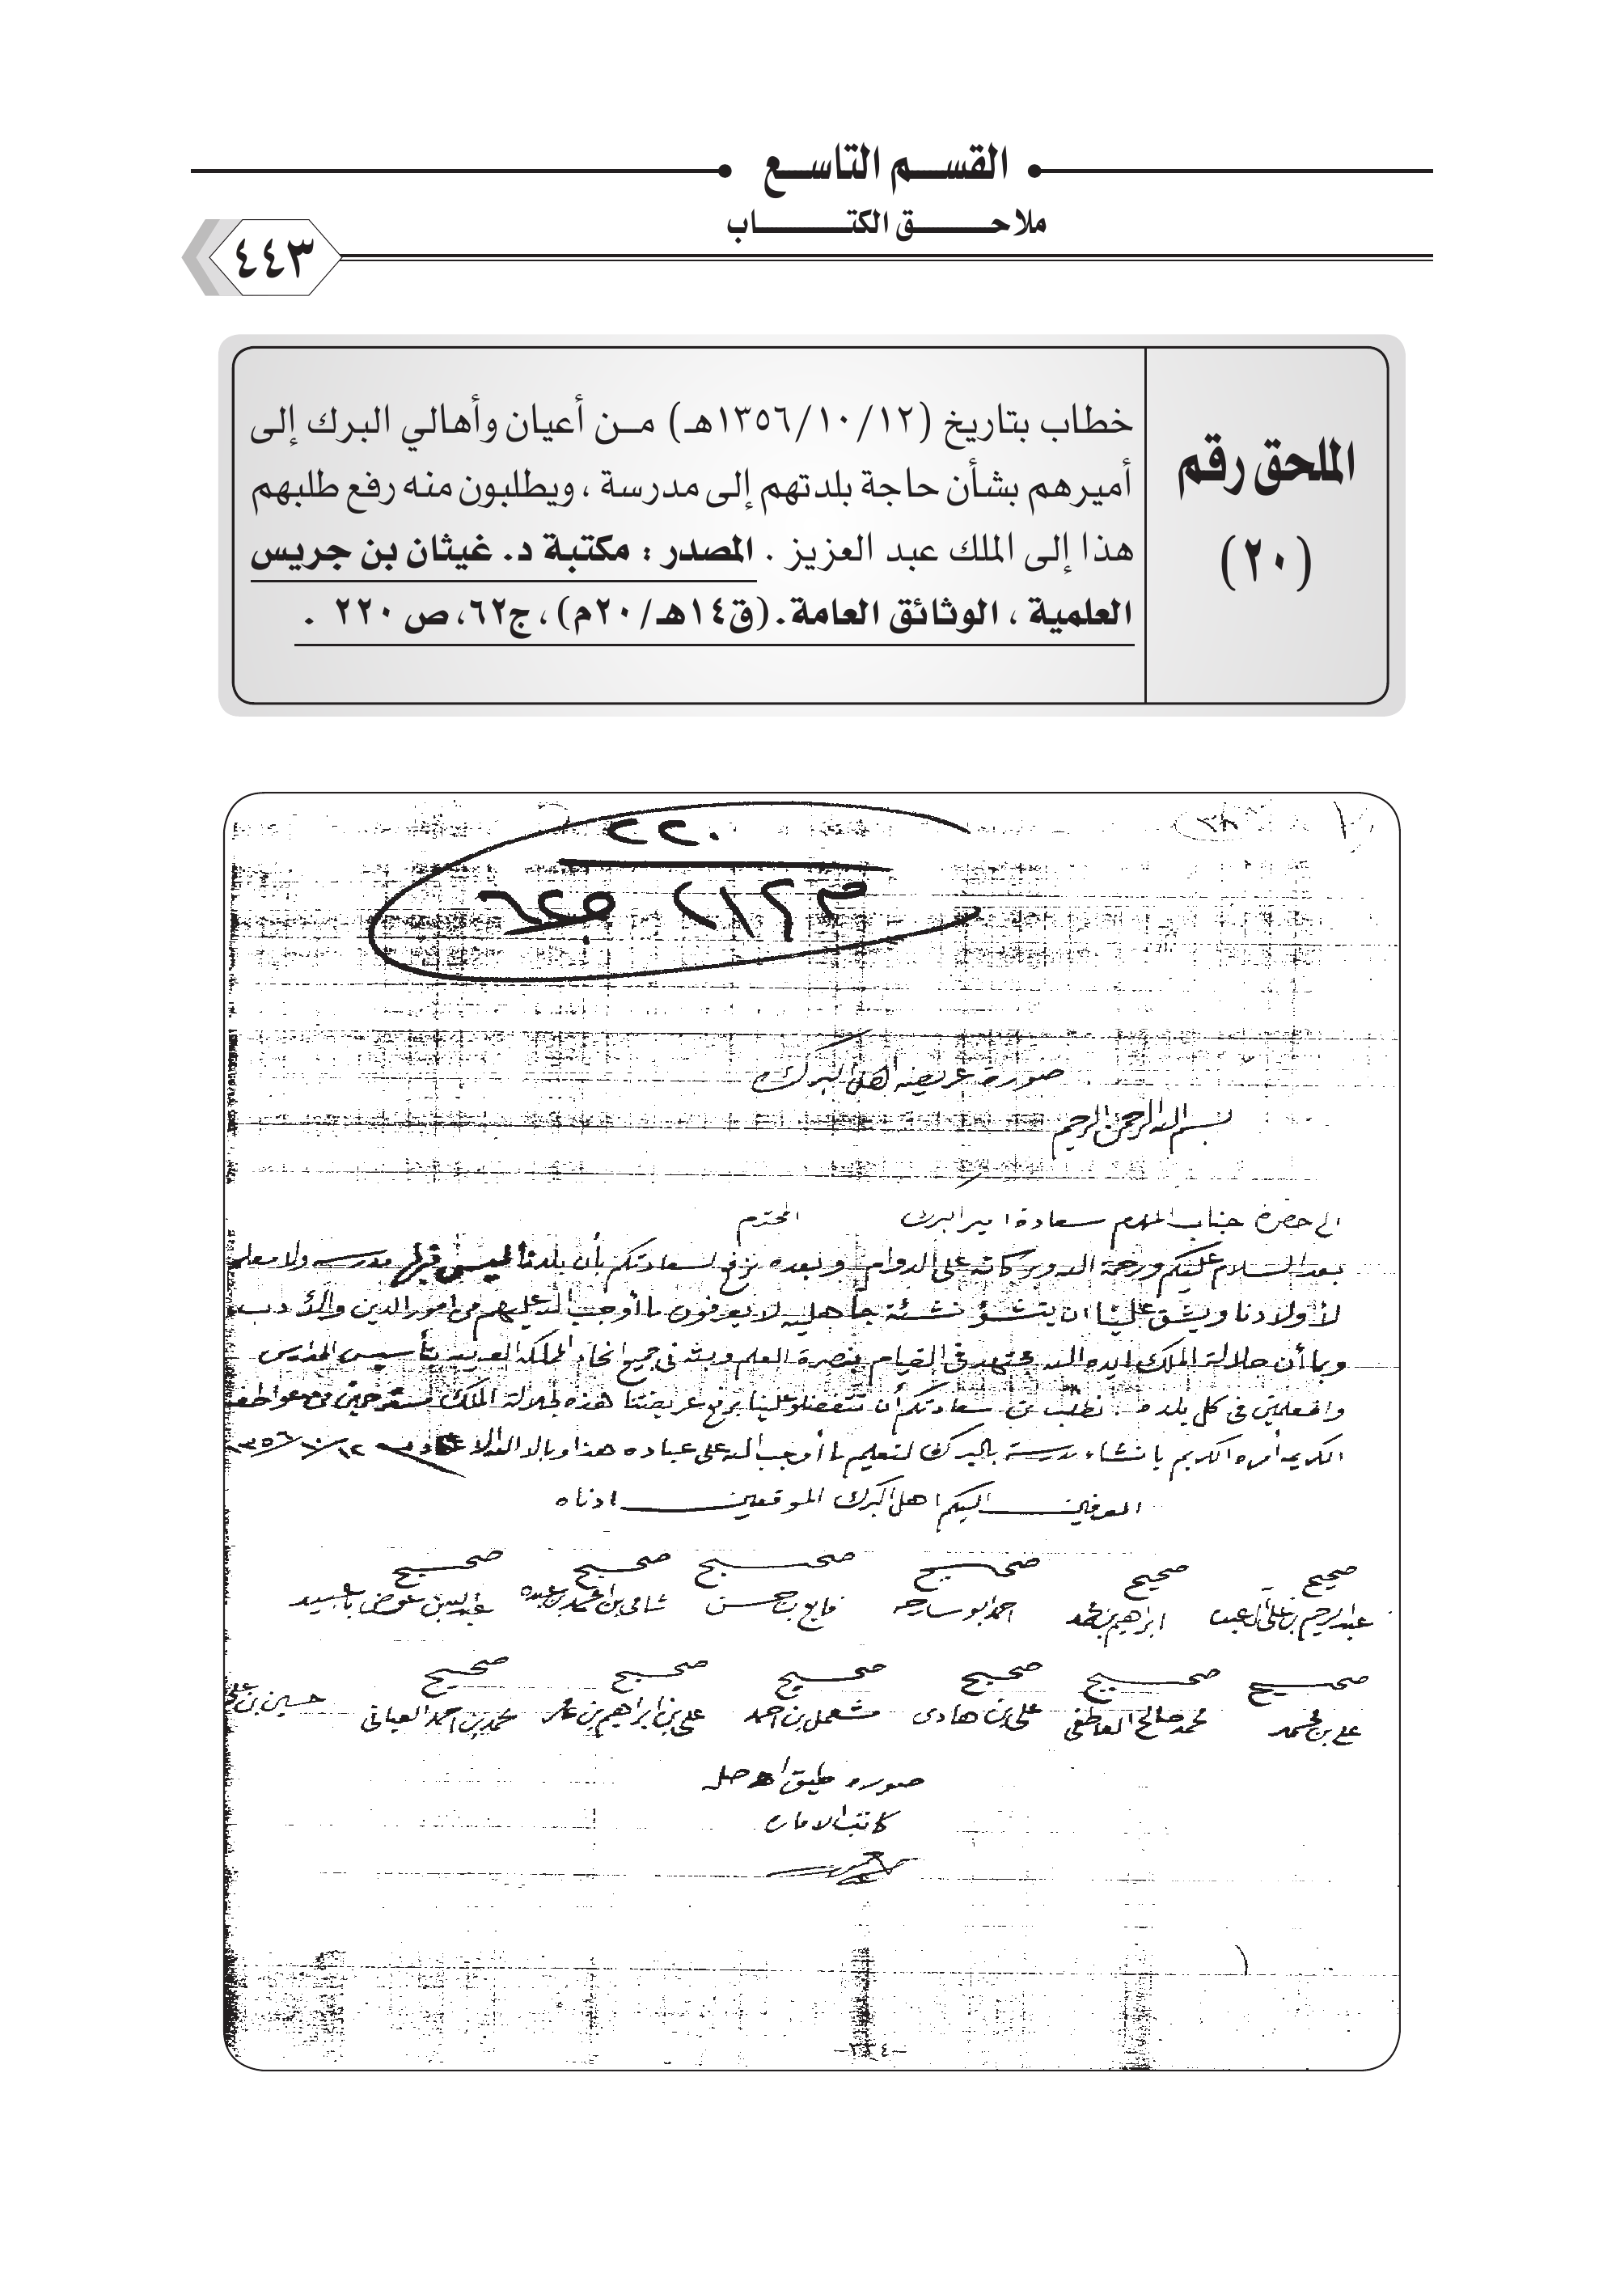 القسم التاسع
ملاحق الكتاب
٤٤٣
الملحق رقم
(٢٠)
خطاب بتاريخ (١٣٥٦/١٠/١٢هـ) من أعيان وأهالي البرك إلى
أميرهم بشأن حاجة بلدتهم إلى مدرسة ، ويطلبون منه رفع طلبهم
هذا إلى الملك عبد العزيز . المصدر : مكتبة د. غيثان بن جريس
العلمية ، الوثائق العامة. (ق١٤هـ/٢٠م) ، ج٦٢، ص ٢٢٠ .
٢٢٠
صورة عريضه اهل البرك
بسم الله الرحمن الرحيم
الى حضرة جناب المكرم سعادة امير البرك المحترم
بعد السلام عليكم ورحمة الله وبركاته على الدوام وبعده نرفع لسعادتكم بأن بلدنا ليس فيها مدرسه ولا معلم
لأولادنا ويشق علينا ان ينشؤ نشئة جاهليه لا يعرفون ما أوجب الله عليهم من امور الدين والأدب
وبما أن جلالة الملك ايده الله مجتهد في القيام بنصرة العلم وبثه في جميع انحاء المملكه العربيه بتأسيس المدارس
والمعلمين في كل بلده . نطلب من سعادتكم أن تتفضلو علينا برفع عريضتنا هذه لجلالة الملك مسترحمين من عواطفه
الكريمه أمره الكريم بانشاء مدرسة بالبرك لتعليم ما أوجب الله على عباده هذا وبالله ١٣٥٦/١٠/١٢
المعرفين اليكم اهل البرك الموقعين ادناه
صحيح صحيح صحيح صحيح صحيح صحيح
عبدالرحيم بن علي ابراهيم بن محمد احمد ابو سارحه فايع بن حسن شامي بن عبدالله بن عوض
صحيح صحيح صحيح صحيح صحيح صحيح
علي بن محمد محمد صالح العاطفي علي بن هادى مشعمل بن احمد علي بن ابراهيم بن عمر محمد بن احمد حسين بن علي
صوره طبق اصله
كاتب الاماره